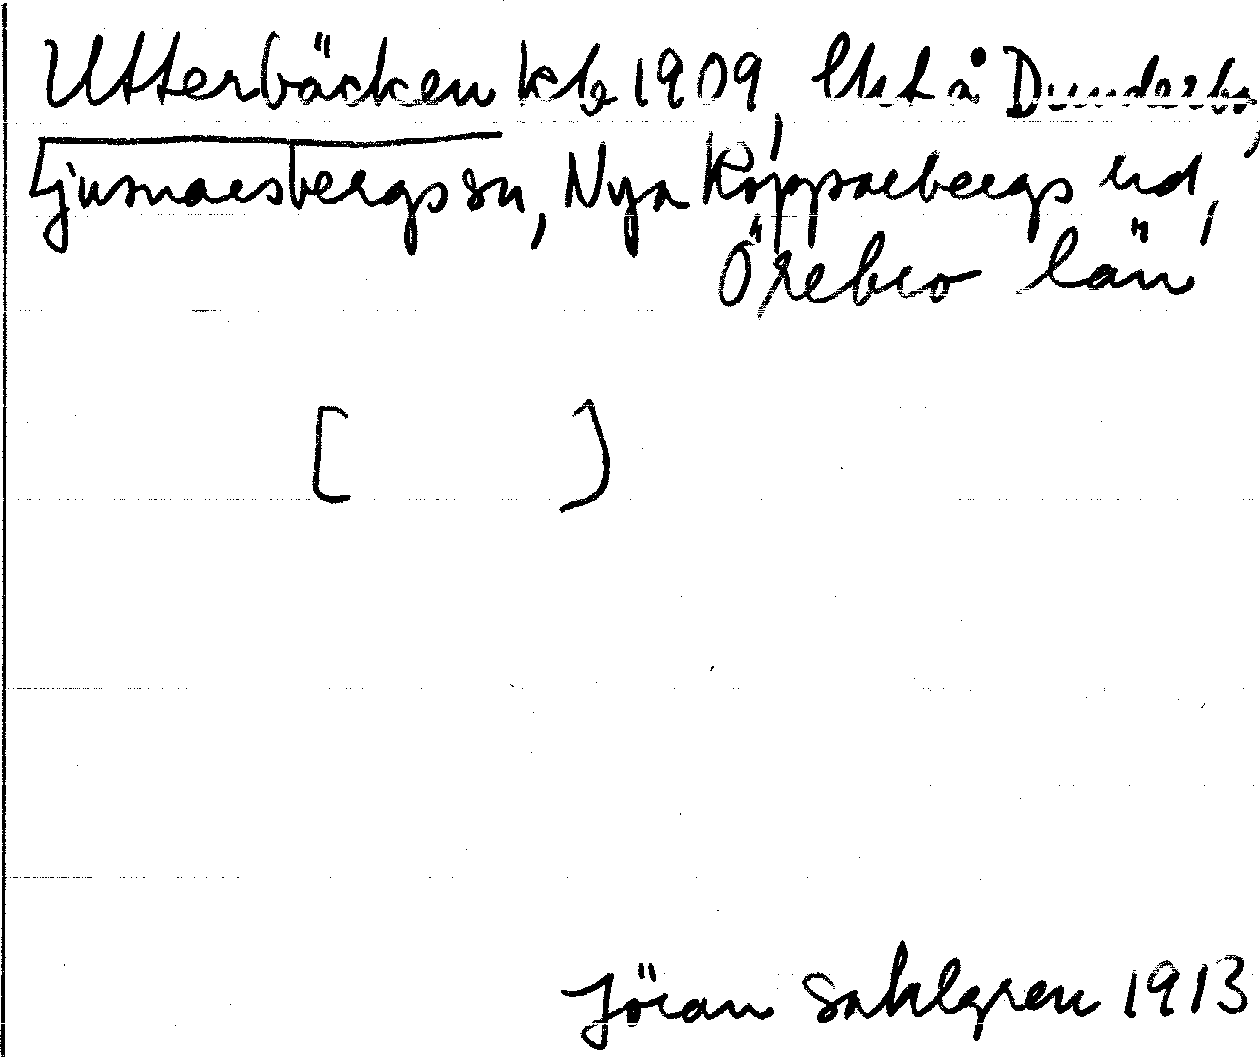 Utterbäcken kb 1909 lht å Dunderbo,
Ljusnarsbergs sn, Nya Kopparbergs hd,
Örebro län
[ ]
Jöran Sahlgren 1913